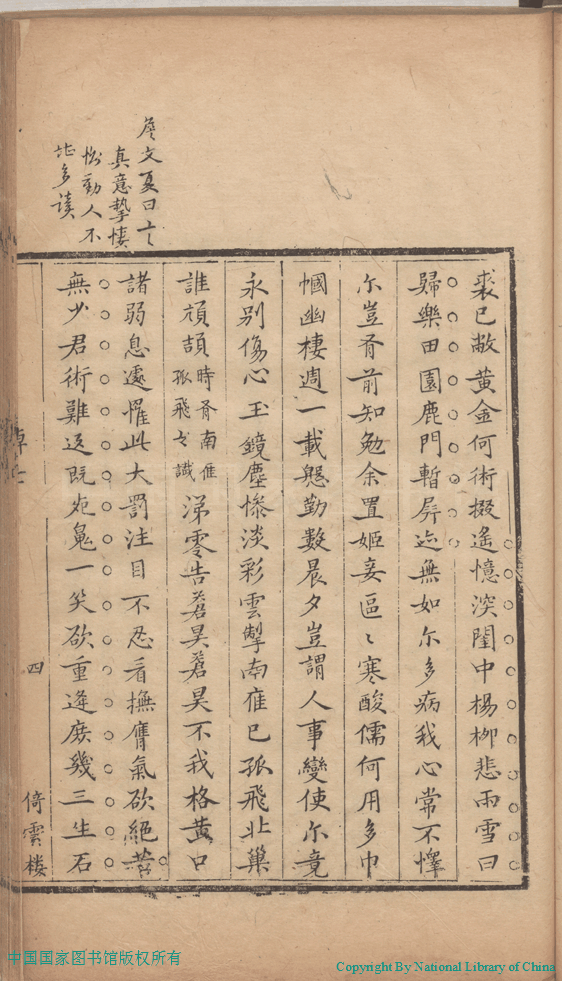 詹文夏曰言之
真意摯悽
惋動人不
能多讀
裘已敝黃金何術掇遙憶深閨中楊柳悲雨雪曰
歸樂田園鹿門暫屏迹無如尔多病我心常不懌
尔豈胥前知勉余置姬妾區〻寒酸儒何用多巾
幗幽棲週一載慇勤數晨夕豈謂人事變使尔竟
永别傷心玉鏡塵慘淡彩雲掣南雁已孤飛北巢
誰頏頡
時胥南雁
孤飛之識
涕零告蒼昊蒼昊不我格黃口
諸弱息遽罹此大罰注目不忍看撫膺氣欲絕苦
無少君術難返既宛鬼一笑欲重逢庶幾三生石
四
倚雲楼
中国国家图书馆版权所有
Copyright By National Library of China